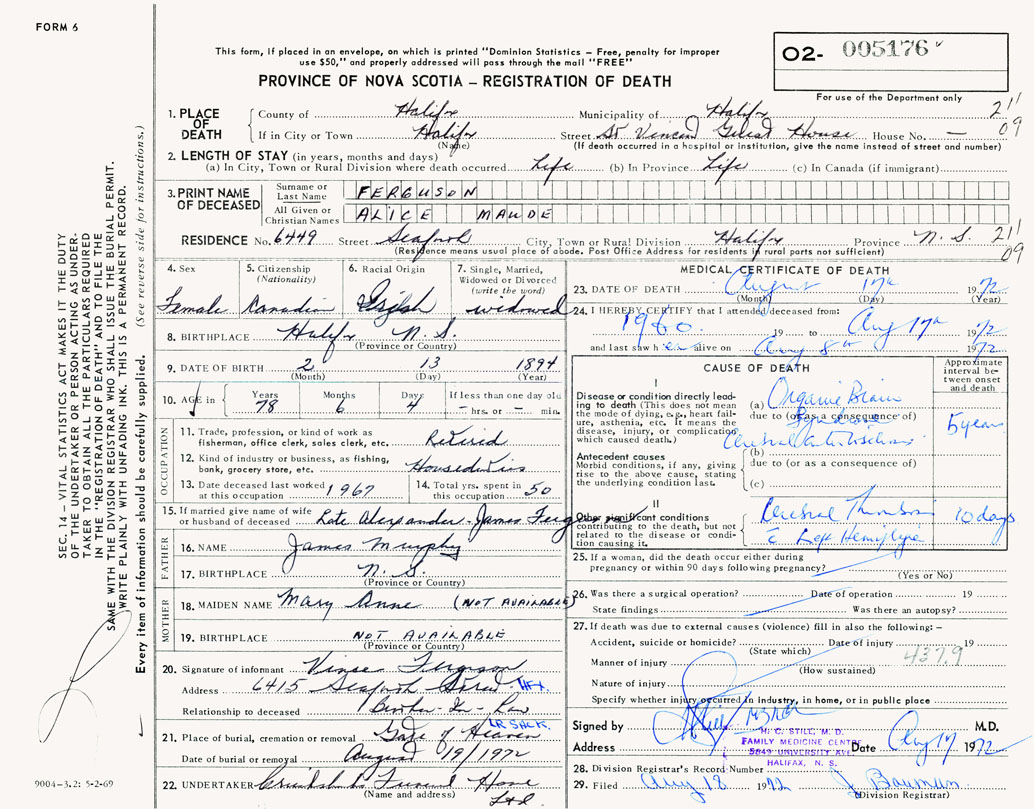 FORM 6
This form, if placed in an envelope, on which is printed "Dominion Statistics – Free, penalty for improper
use $50," and properly addressed will pass through the mail "FREE"
PROVINCE OF NOVA SCOTIA – REGISTRATION OF DEATH
O2- 005176
For use of the Department only
1. PLACE OF DEATH
County of Halifx Municipality of Halifx 211
If in City or Town Halifx Street St Vincent House House No. — 09
(Name) (If death occurred in a hospital or institution, give the name instead of street and number)
2. LENGTH OF STAY (in years, months and days)
(a) In City, Town or Rural Division where death occurred Life (b) In Province Life (c) In Canada (if immigrant)
3. PRINT NAME OF DECEASED
Surname or Last Name FERGUSON
All Given or Christian Names ALICE MAUDE
RESIDENCE No. 6449 Street Seaforth City, Town or Rural Division Halifx Province N. S. 211
(Residence means usual place of abode. Post Office Address for residents in rural parts not sufficient) 09
4. Sex Female
5. Citizenship (Nationality) Canadian
6. Racial Origin
7. Single, Married, Widowed or Divorced (write the word) widowed
8. BIRTHPLACE Halifx N. S.
(Province or Country)
9. DATE OF BIRTH 2 13 1894
(Month) (Day) (Year)
10. AGE in Years 78 Months 6 Days 4 If less than one day old – hrs. or – min.
OCCUPATION
11. Trade, profession or kind of work as
fisherman, office clerk, sales clerk, etc. Retired
12. Kind of industry or business, as fishing,
bank, grocery store, etc.
13. Date deceased last worked
at this occupation 1967
14. Total yrs. spent in
this occupation 50
15. If married give name of wife
or husband of deceased Late Alexander James Ferguson
FATHER
16. NAME James Murphy
17. BIRTHPLACE N. S.
(Province or Country)
MOTHER
18. MAIDEN NAME Mary Anne (NOT AVAILABLE)
19. BIRTHPLACE NOT AVAILABLE
(Province or Country)
20. Signature of informant Vince Ferguson
Address 6415 Seaforth Street Hfx.
Relationship to deceased Brother-In-Law
21. Place of burial, cremation or removal Gate of Heaven LR SACK.
Date of burial or removal August 19/1972
22. UNDERTAKER Funeral Home Ltd
(Name and address)
MEDICAL CERTIFICATE OF DEATH
23. DATE OF DEATH August 17th 1972
(Month) (Day) (Year)
24. I HEREBY CERTIFY that I attended deceased from:
1960. 19 to Aug 17th 1972
and last saw her alive on Aug 8th 1972
CAUSE OF DEATH
Approximate interval between onset and death
I
Disease or condition directly leading
to death (This does not mean
the mode of dying, e.g., heart failure,
asthenia, etc. It means the
disease, injury, or complication
which caused death.)
(a) Organic Brain
due to (or as a consequence of) Syndrome
Cerebral 5 years
Antecedent causes
Morbid conditions, if any, giving
rise to the above cause, stating
the underlying condition last.
(b)
due to (or as a consequence of)
(c)
II
Other significant conditions
contributing to the death, but not
related to the disease or condition
causing it.
Cerebral Thrombosis 10 days
c̄ Left Hemiplegia
25. If a woman, did the death occur either during
pregnancy or within 90 days following pregnancy?
(Yes or No)
26. Was there a surgical operation? Date of operation 19
State findings Was there an autopsy?
27. If death was due to external causes (violence) fill in also the following: –
Accident, suicide or homicide? Date of injury 19
(State which)
Manner of injury 437.9
(How sustained)
Nature of injury
Specify whether injury occurred in industry, in home, or in public place
Signed by M.D.
H. C. STILL, M. D.
FAMILY MEDICINE CENTRE
5849 UNIVERSITY AVE
HALIFAX, N. S.
Address Date Aug 17 1972
28. Division Registrar's Record Number
29. Filed Aug 18 1972 J. Bauman
(Division Registrar)
SEC. 14 – VITAL STATISTICS ACT MAKES IT THE DUTY
OF THE UNDERTAKER OR PERSON ACTING AS UNDERTAKER
TO OBTAIN ALL THE PARTICULARS REQUIRED
IN THE "REGISTRATION OF DEATH" AND TO FILE THE
SAME WITH THE DIVISION REGISTRAR WHO SHALL ISSUE THE BURIAL PERMIT.
WRITE PLAINLY WITH UNFADING INK. THIS IS A PERMANENT RECORD.
Every item of information should be carefully supplied. (See reverse side for instructions.)
9004-3.2: 5-2-69